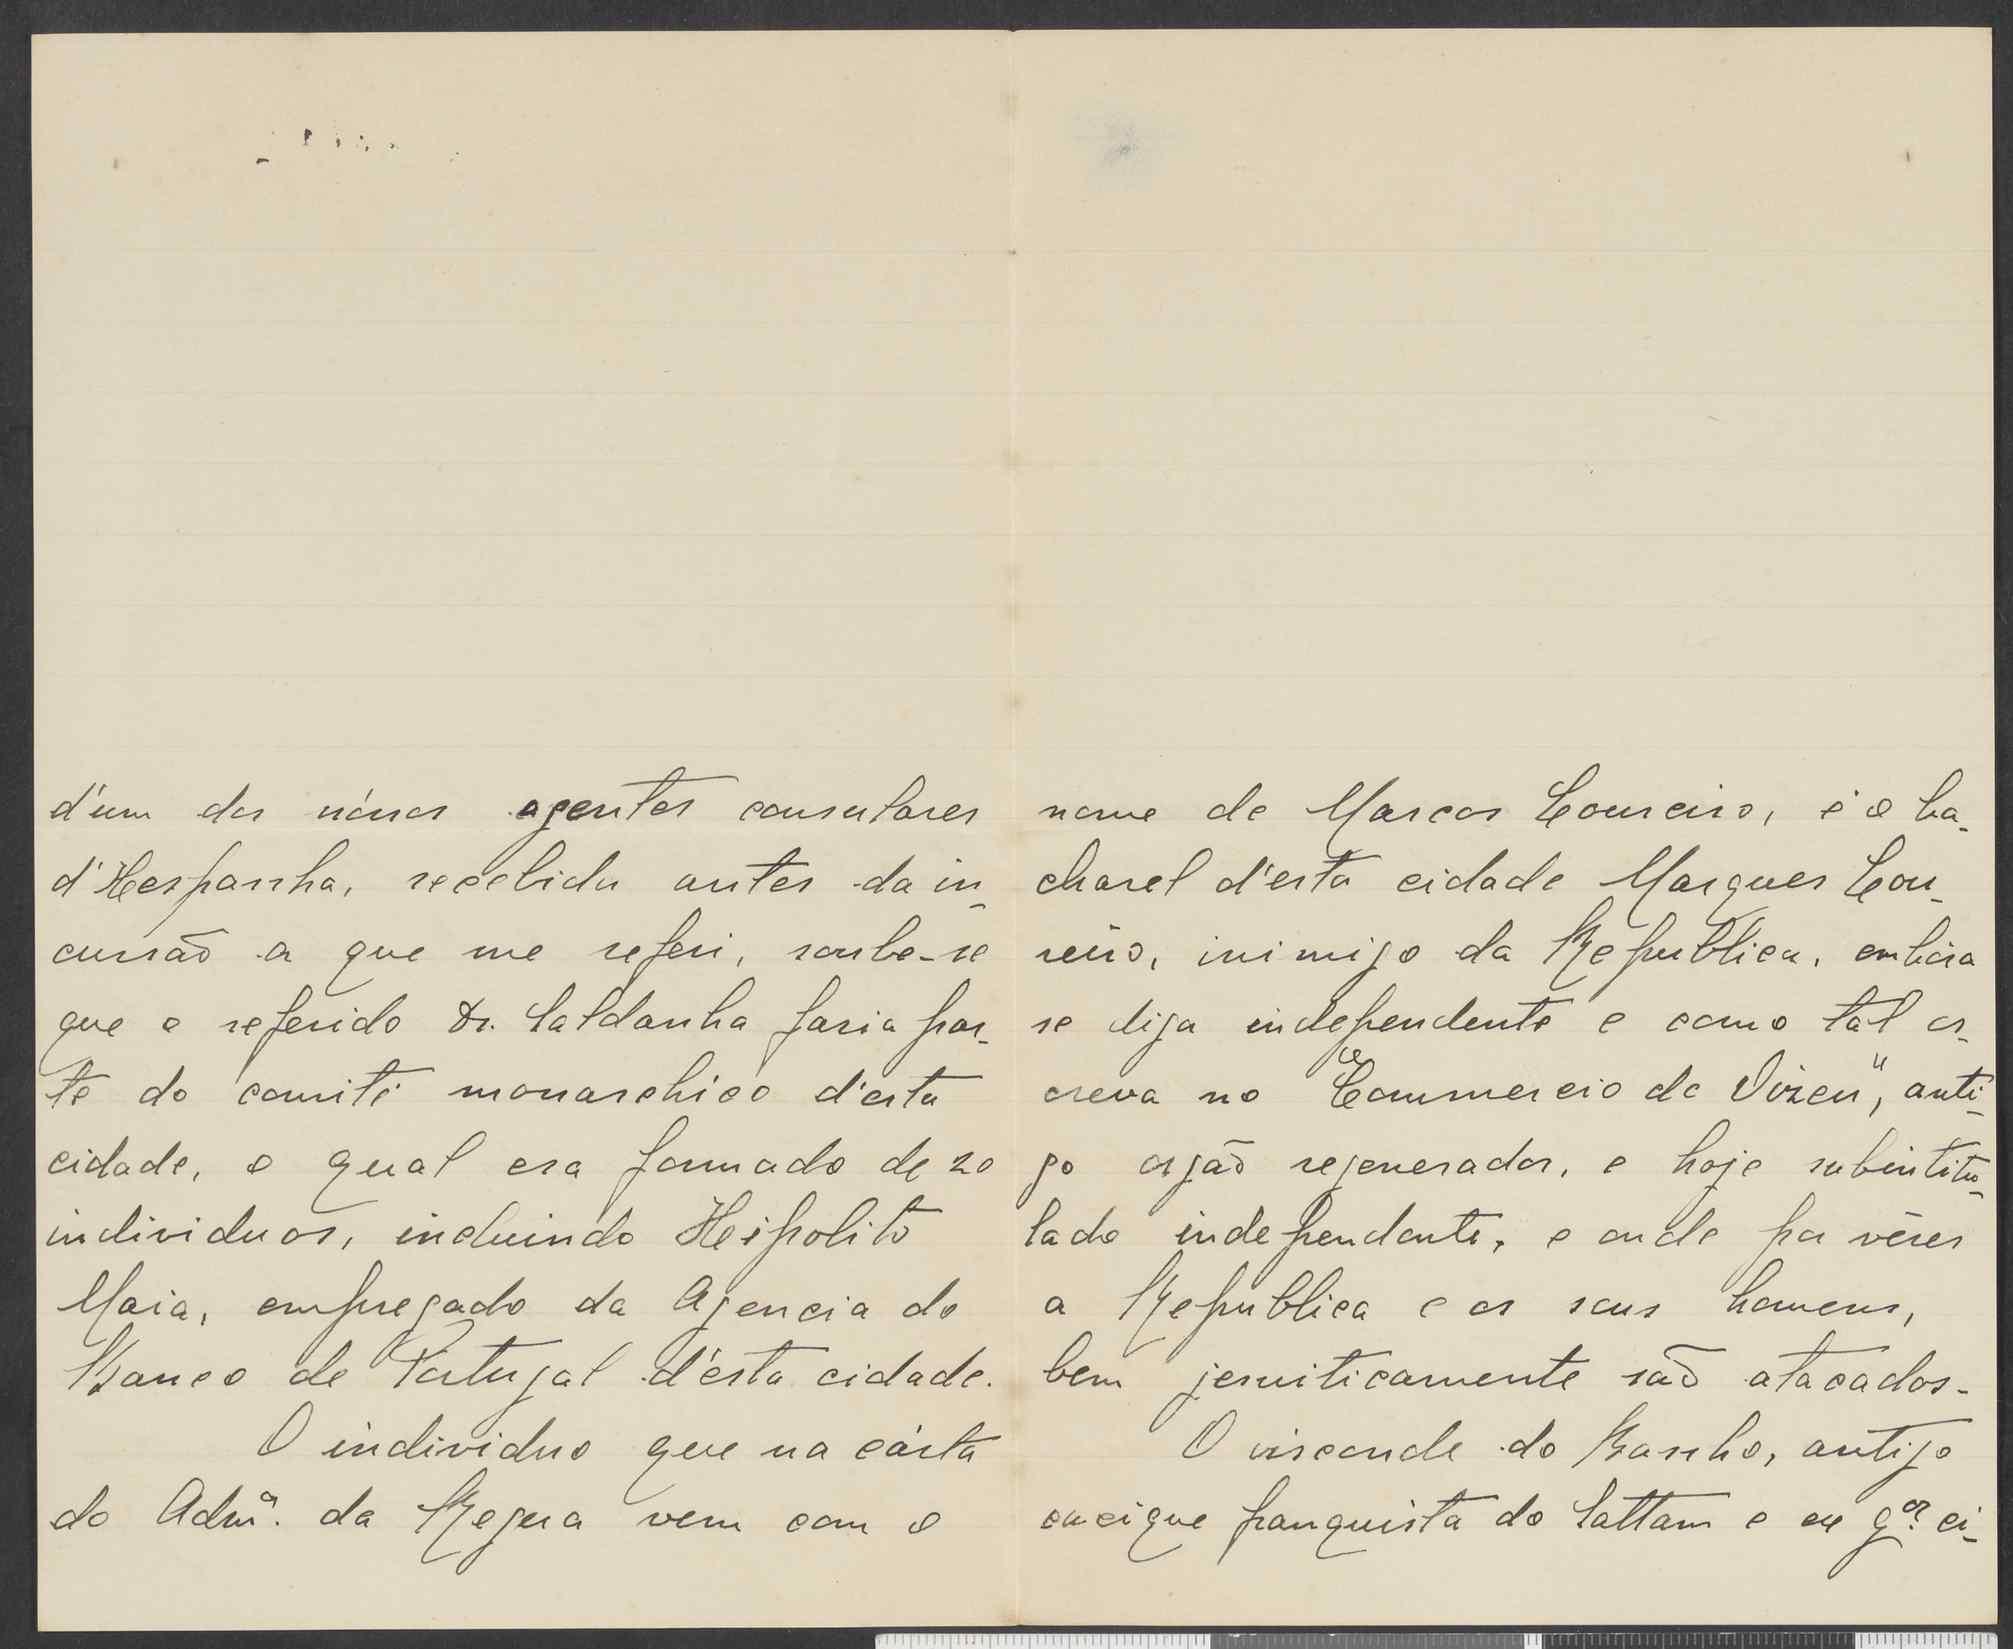 d'um dos nósos agentes consulares
d'Hespanha, recebidu antes da in-
cursão a que me referi, soube-se
que o referido Dr. Saldanha fazia par-
te do comité monarchico d'esta
cidade, o qual era formado de 20
individuos, incluindo Heipolito
Maia, empregado da Agencia do
Banco de Portugal d'esta cidade.
O individuo que na cárta
do Admor. da Regua vem com o
nome de Marcos Loureiro, é o ba-
charel d'esta cidade Marques Lou-
reiro, inimigo da Republica, embóra
se diga independente e como tál es-
creva no "Commercio de Vizeu", anti-
go orgão regenerador, e hoje subintitu-
lado independente, e onde por vêses
a Republica e os seus homens,
bem jesuiticamente são atacados.
O visconde do Banho, antigo
cacique franquista do Sattam e ex gor. ci-